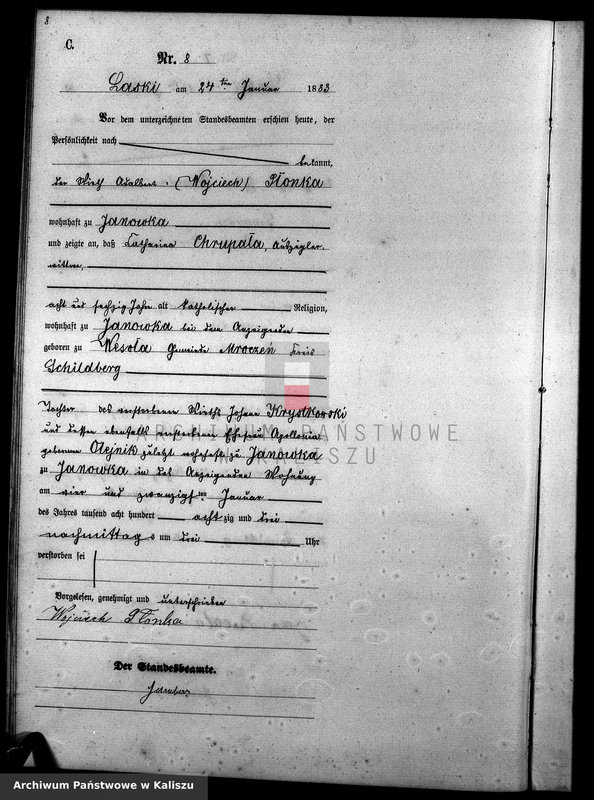 8
C.
Nr. 8
Laski am 24ten Januar 1883
Vor dem unterzeichneten Standesbeamten erschien heute, der
Persönlichkeit nach
bekannt,
der Wirth Adalbert (Wojciech) Płonka
wohnhaft zu Janowka
und zeigte an, daß Catharina Chrupała, Auszügler-
wittwe,
acht und sechzig Jahre alt katholischer Religion,
wohnhaft zu Janowka bei dem Anzeigenden
geboren zu Wesoła Gemeinde Mroczeń Kreis
Schildberg
Tochter des verstorbenen Wirths Johann Krystkowski
und dessen ebenfalls verstorbenen Ehefrau Apollonia
geborene Olejnik zuletzt wohnhaft zu Janowka
zu Janowka in des Anzeigenden Wohnung
am vier und zwanzigsten Januar
des Jahres tausend acht hundert achtzig und drei
nachmittags um drei Uhr
verstorben sei
Vorgelesen, genehmigt und unterschrieben
Wojciech Płonka
Der Standesbeamte.
ARCHIWUM PAŃSTWOWE
W KALISZU
Archiwum Państwowe w Kaliszu